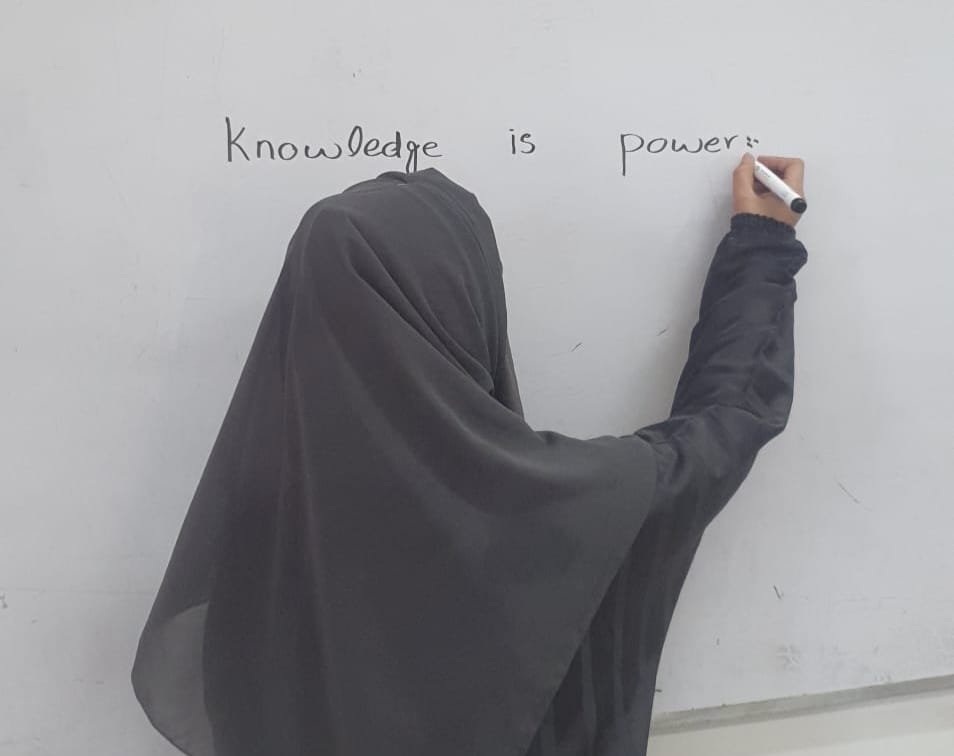 Knowledge is power: